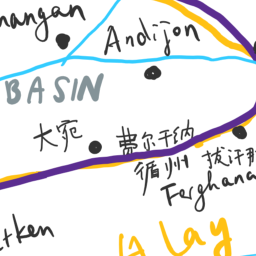 nangan
Andijon
BASIN
大宛
费尔干纳
循州 拔汗那
Ferghana
Alay